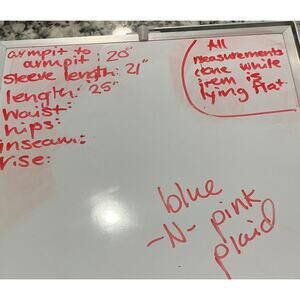 armpit to
armpit: 20"
sleeve length: 21"
length: 25"
waist:
hips:
inseam:
rise:
All
measurements
done while
item is
lying flat
blue
-N- pink
plaid